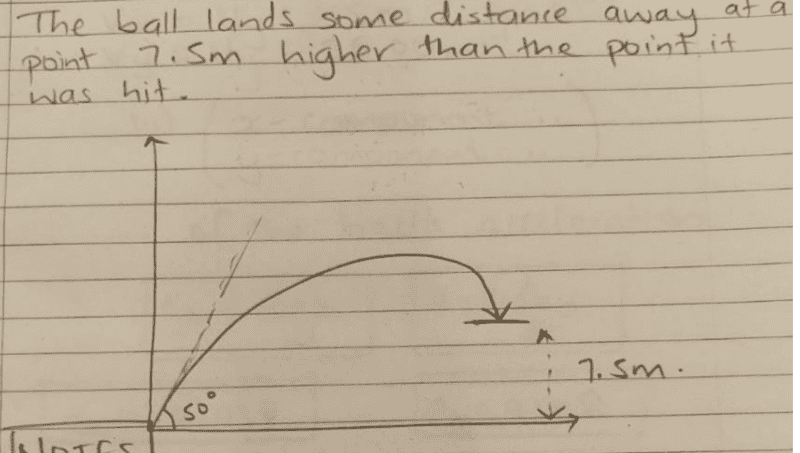 The ball lands some distance away at a
point 7.5m higher than the point it
was hit.
50°
7.5m.
NOTES